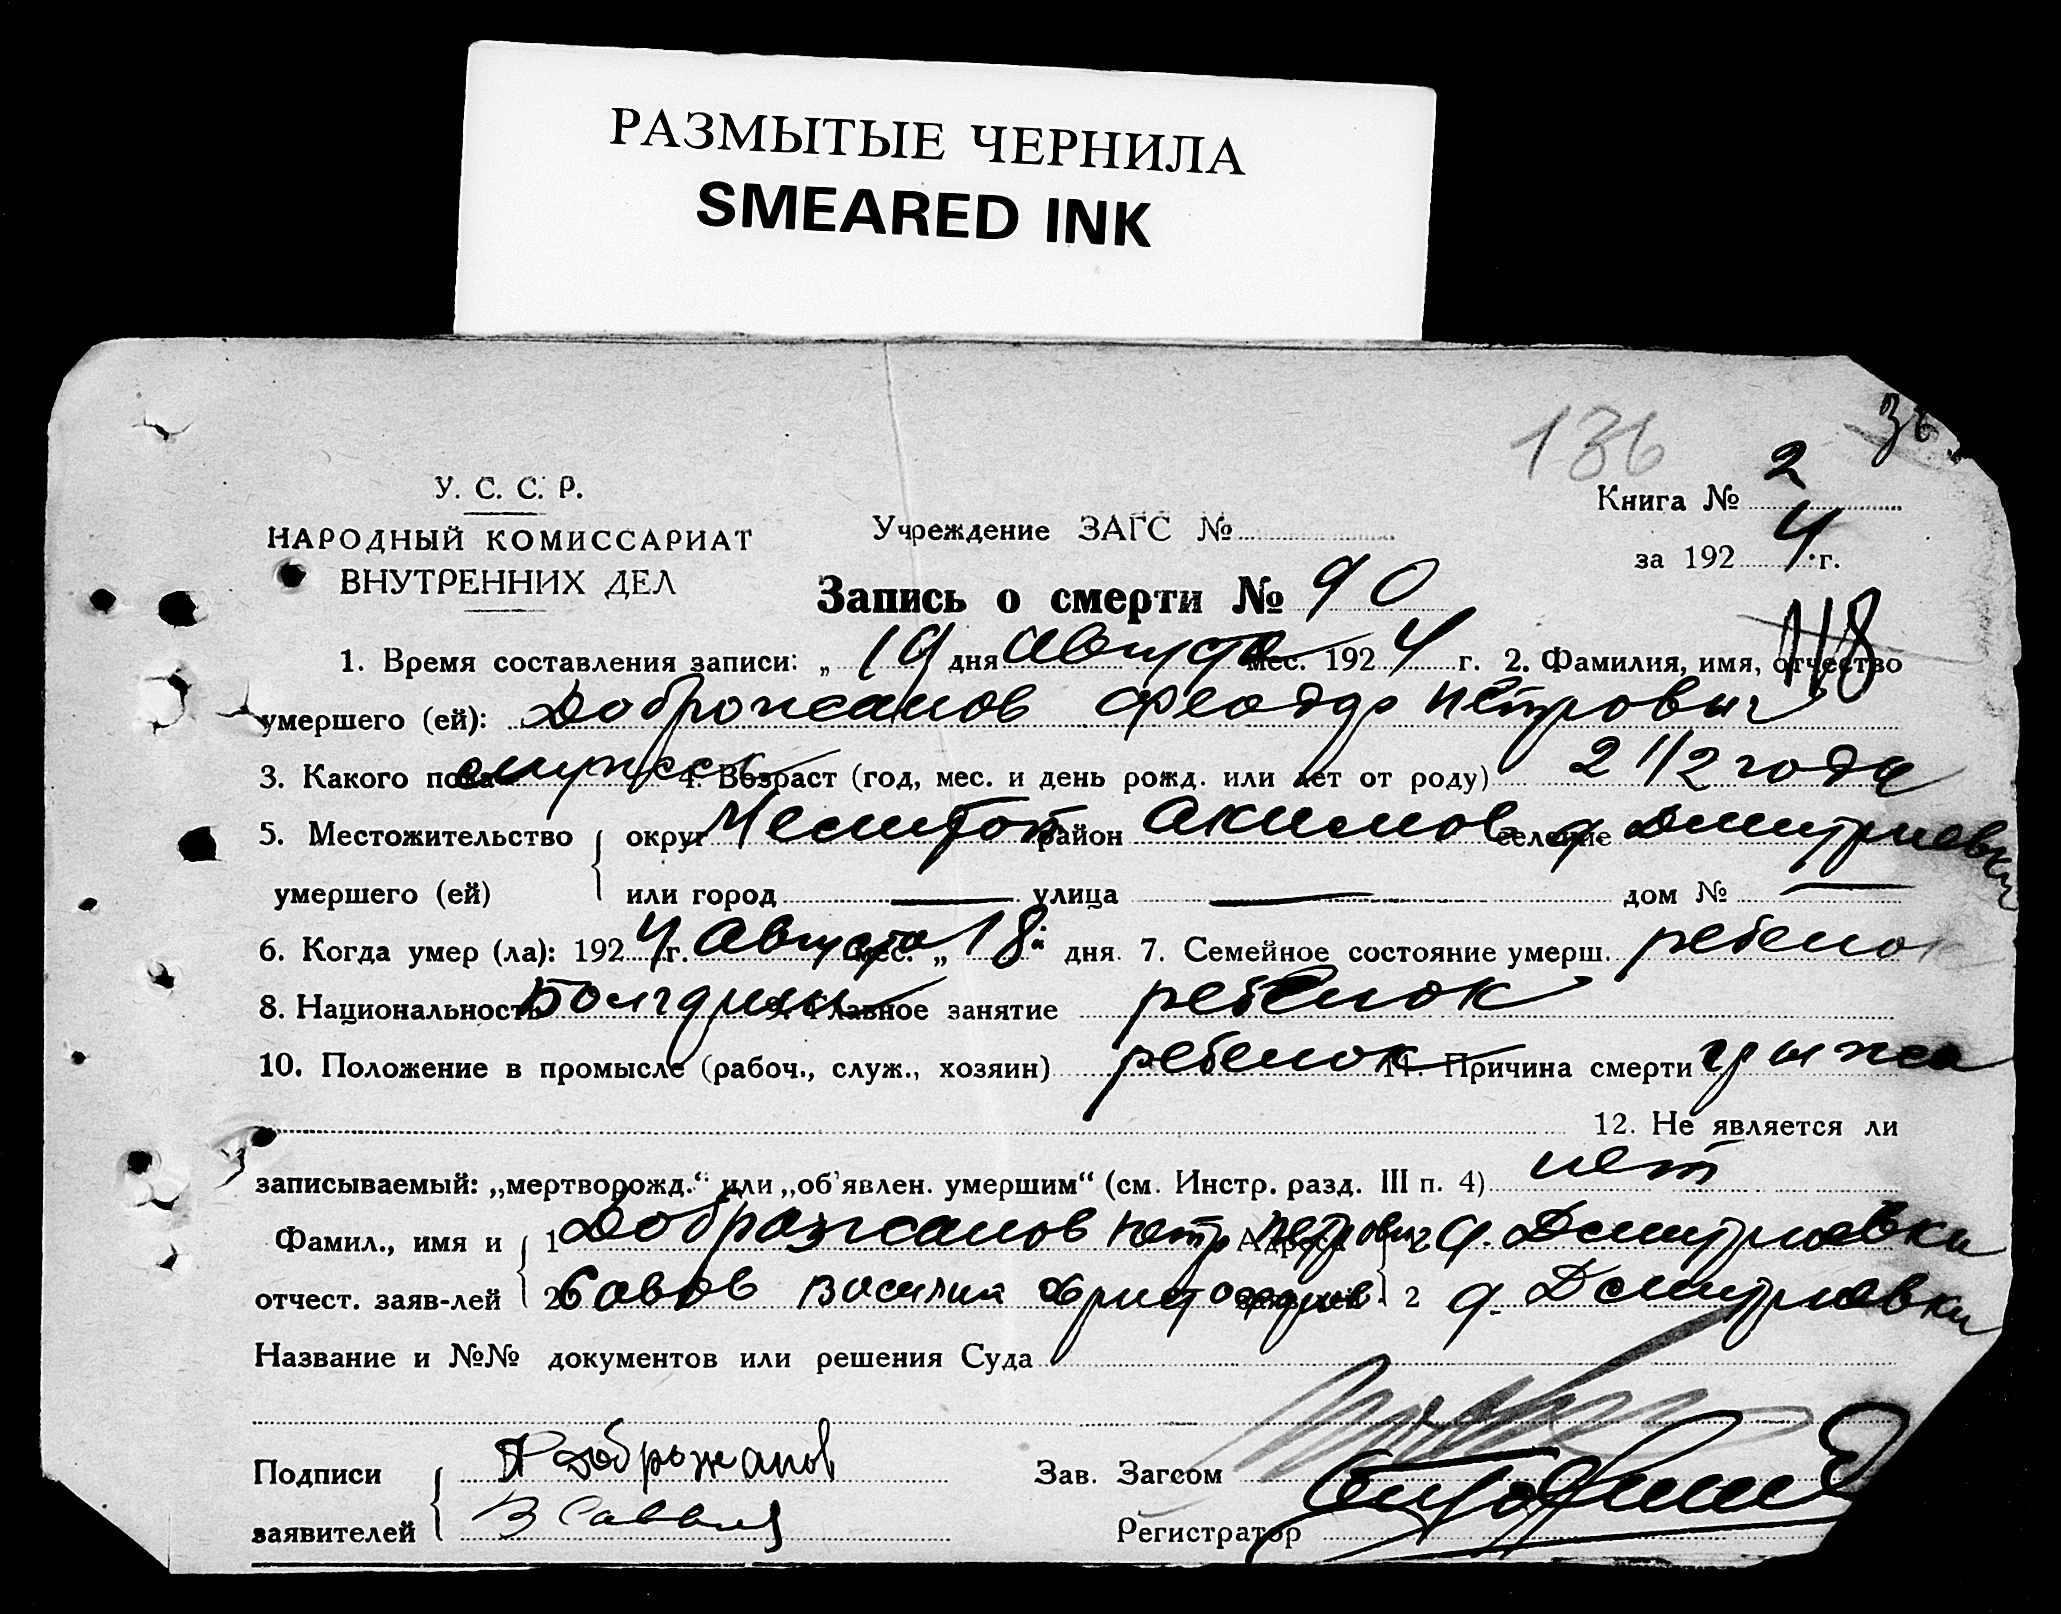 РАЗМЫТЫЕ ЧЕРНИЛА
SMEARED INK
136
У. С. С. Р.
НАРОДНЫЙ КОМИССАРИАТ
ВНУТРЕННИХ ДЕЛ
Учреждение ЗАГС №
Книга № 2
за 1924 г.
Запись о смерти № 90
118
1. Время составления записи: „ 19 дня Августа мес. 1924 г. 2. Фамилия, имя, отчество
умершего (ей): Доброжанов Феодор Петрович
3. Какого пола мужск 4. Возраст (год, мес. и день рожд. или лет от роду) 2 1/2 года
5. Местожительство округ Мелитоп район Акимов селение д Дмитриевки
умершего (ей) или город — улица — дом № —
6. Когда умер (ла): 1924 г. Августа мес. „ 18 " дня. 7. Семейное состояние умерш. ребенок
8. Национальность Болгарин 9. Главное занятие ребенок
10. Положение в промысле (рабоч., служ., хозяин) ребенок 11. Причина смерти грыжа
12. Не является ли
записываемый: „мертворожд.“ или „об’явлен. умершим“ (см. Инстр. разд. III п. 4) нет
Фамил., имя и 1 Доброжанов Петр Петрович Адреса д. Дмитриевки
отчест. заяв-лей 2 Савов Василий Христофоров 2 д. Дмитриевки
Название и №№ документов или решения Суда
Подписи П Доброжанов Зав. Загсом
заявителей В Савв Регистратор